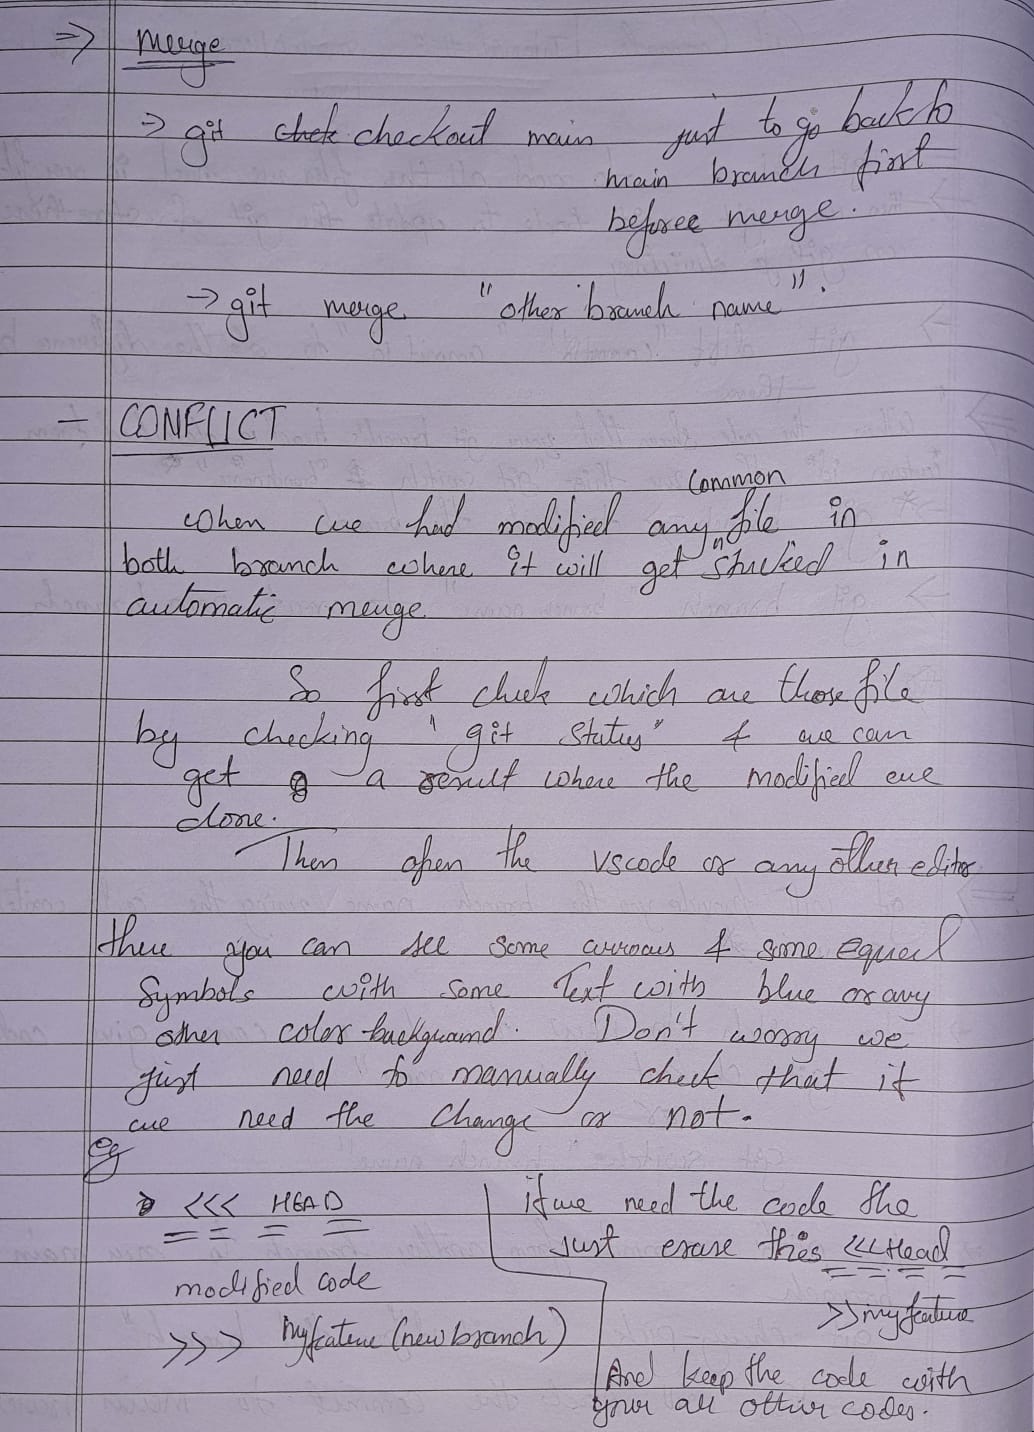 ⇒ Merge
→ git checkout main just to go back to
main branch first
before merge.
→ git merge "other branch name".
- CONFLICT
Common
when we had modified any file in
both branch where it will get "stucked in
automatic merge.
So first check which are those file
by checking "git status" & we can
get a result where the modified we
done.
Then open the vscode or any other editor
there you can see some arrows & some equal
Symbols with some Text with blue or any
other color background. Don't worry we
just need to manually check that if
we need the change or not.
eg
<<< HEAD
== = =
modified code
>>> Myfeature (new branch)
if we need the code the
just erase this <<<Head
== = =
>>myfeature
And keep the code with
your all other codes.